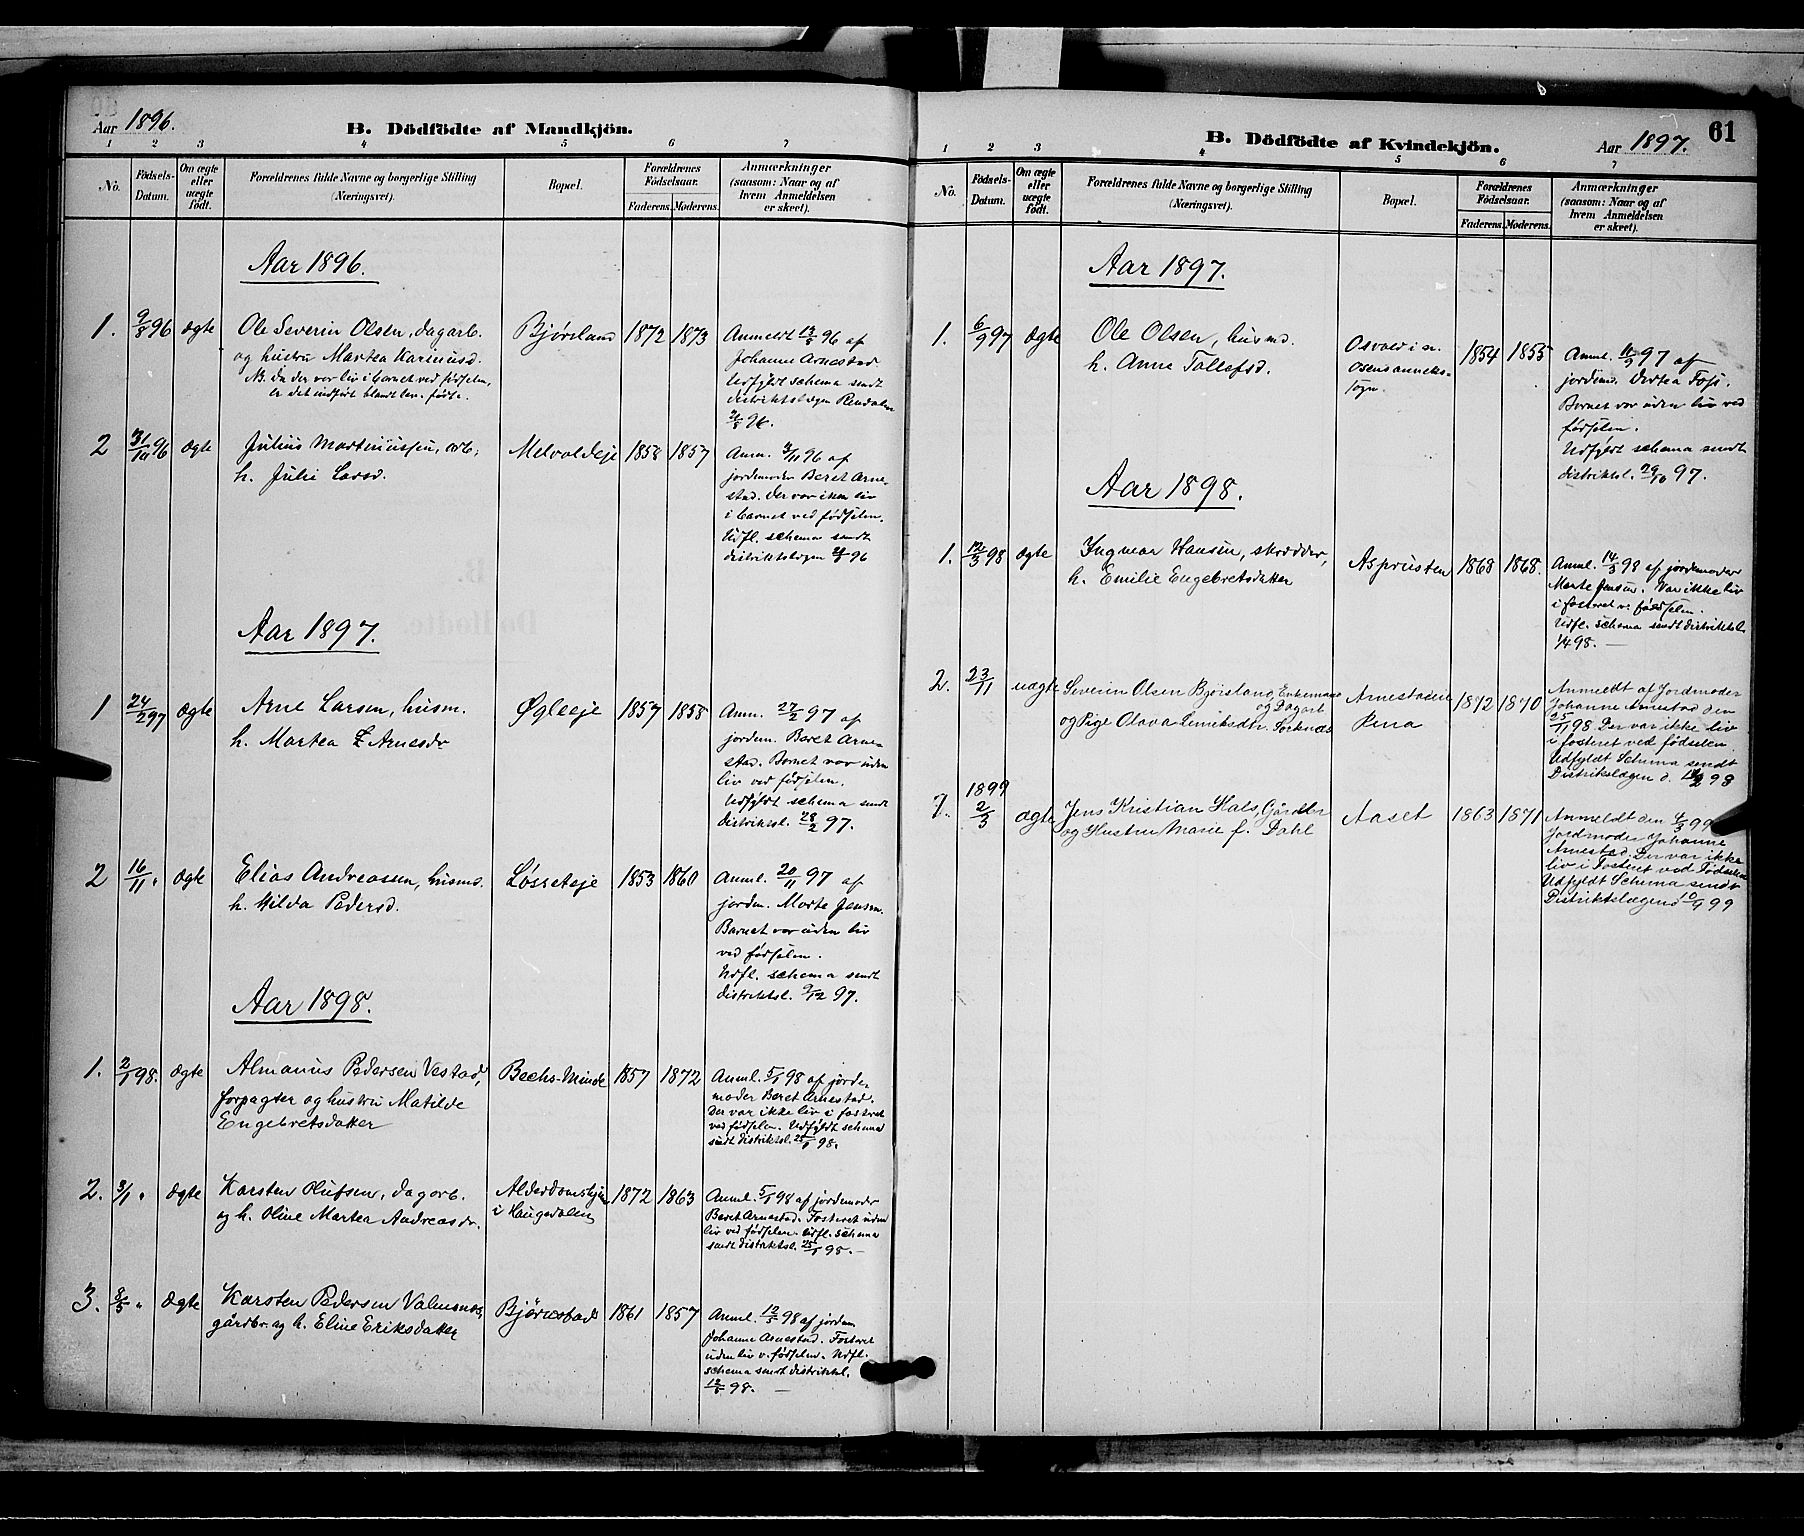 Aar 1896.
B. Dödfödte af Mandkjön.
1 2 3 4 5 6 7
No.
Födsels-
Datum.
Om ægte
eller
uægte
födt.
Forældrenes fulde Navne og borgerlige Stilling
(Næringsvei).
Bopæl.
Forældrenes
Födselsaar.
Faderens. Moderens.
Anmærkninger
(saasom: Naar og af
hvem Anmeldelsen
er skeet).
Aar 1896.
1. 9/8 96 ægte Ole Severin Olsen, dagarb. Bjørsland 1872 1873
og hustru Martea Karinusd.
NB. Da der var liv i barnet ved fødselen,
er det indført blandt lev. fødte.
Anmeldt 12/8 96 af
Johanne Arnestad
Udfyldt schema sendt
distriktslægen Rendalen
96.
2 31/10 96 ægte Julius Martiniussen, arb., Melvoldeje 1858 1857
h. Julie Larsd.
Anm. 96 af
jordemoder Beret Arne-
stad. Der var ikke liv
i barnet ved fødselen.
Udfl. schema sendt
distriktslægen 96
Aar 1897.
1 24/2 97 ægte Arne Larsen, husm. Øgleeje 1857 1858
h. Martea Arnesdr
Anm. 27/2 97 af
jordem. Beret Arne-
stad. Barnet var uden
liv ved fødselen.
Udfyldt schema sendt
distriktsl. 28/2 97.
2 16/11 " ægte Elias Andreassen, husm. Løsseteje 1853 1860
h. Hilda Pedersd.
Anml. 20/11 97 af
jordem. Marte Jensen.
Barnet var uden liv
ved fødselen.
Udfl. schema sendt
distriktsl. 9/12 97.
Aar 1898.
1. 2/1 98. ægte Almanus Pedersen Vestad, Bechs-Minde 1857 1872
forpagter og hustru Matilde
Engebretsdatter
Anml. 5/1 98 af jorde-
moder Beret Arnestad.
Der var ikke liv i fosteret
ved fødselen. Udfyldt schema
sendt distriktsl. 25/1 98.
2. 3/1 " ægte Karsten Olufsen, dagarb. 1872 1863
og h. Oline Martea Andreasdr. i Haugedalen
Anml. 5/1 98 af jordemoder
Beret Arnestad. Fosteret uden
liv ved fødselen. Udfl. schema
sendt distriktsl. 25/1 98. —
3. 8/5 " ægte Karsten Pedersen Valmsnes, Bjørnstad 1861 1857
gårdbr. og h. Eline Eriksdatter
Anml. 12/5 98 af jordem
Johanne Arnestad. Fosteret
uden liv v. fødselen. Udfl.
schema sendt distriktsl.
98. —
B. Dödfödte af Kvindekjön.
Aar 1897.
61
1 2 3 4 5 6 7
No.
Födsels-
Datum.
Om ægte
eller
uægte
födt.
Forældrenes fulde Navne og borgerlige Stilling
(Næringsvei).
Bopæl.
Forældrenes
Födselsaar.
Faderens. Moderens.
Anmærkninger
(saasom: Naar og af
hvem Anmeldelsen
er skeet).
Aar 1897.
1. 6/9 97 ægte Ole Olsen, husmd. 1854 1855
h. Anne Tollefsd.
Osvold i
Osens anneks-
sogn.
Anml. 11/9 97 af
jordemd. Dortea Foss.
Barnet var uden liv ved
fødselen.
Udfyldt schema sendt
distriktsl. 29/10 97.
Aar 1898.
1. 12/3 98 ægte Ingmar Hansen, skrædder, Asprusten 1868 1868.
h. Emilie Engebretsdatter
Anml. 14/3 98 af jordemoder
Marte Jensen. Var ikke liv
i fosteret v. fødselen.
Udfl. schema sendt distriktsl.
1/4 98. —
2. 23/11 uægte Severin Olsen Bjørsland, Enkemand Arnestadeie 1872 1870
og Dagarb
og Pige Olava Sorknæs Rena
Anmeldt af Jordmoder
Johanne Arnestad den
25/11 98. Der var ikke liv
i fosteret ved fødselen
Udfyldt Schema sendt
Distrikslægen d. 98
1899
7. 2/3 ægte Jens Kristian Hals, Gårdbr Aaset 1863 1871
og Hustru Marie f. Dahl
Anmeldt den 4/3 99
Jordmoder Johanne
Arnestad. Der var ikke
liv i Fosteret ved Fødselen
Udfyldt Schema sendt
Distriktslægen 99